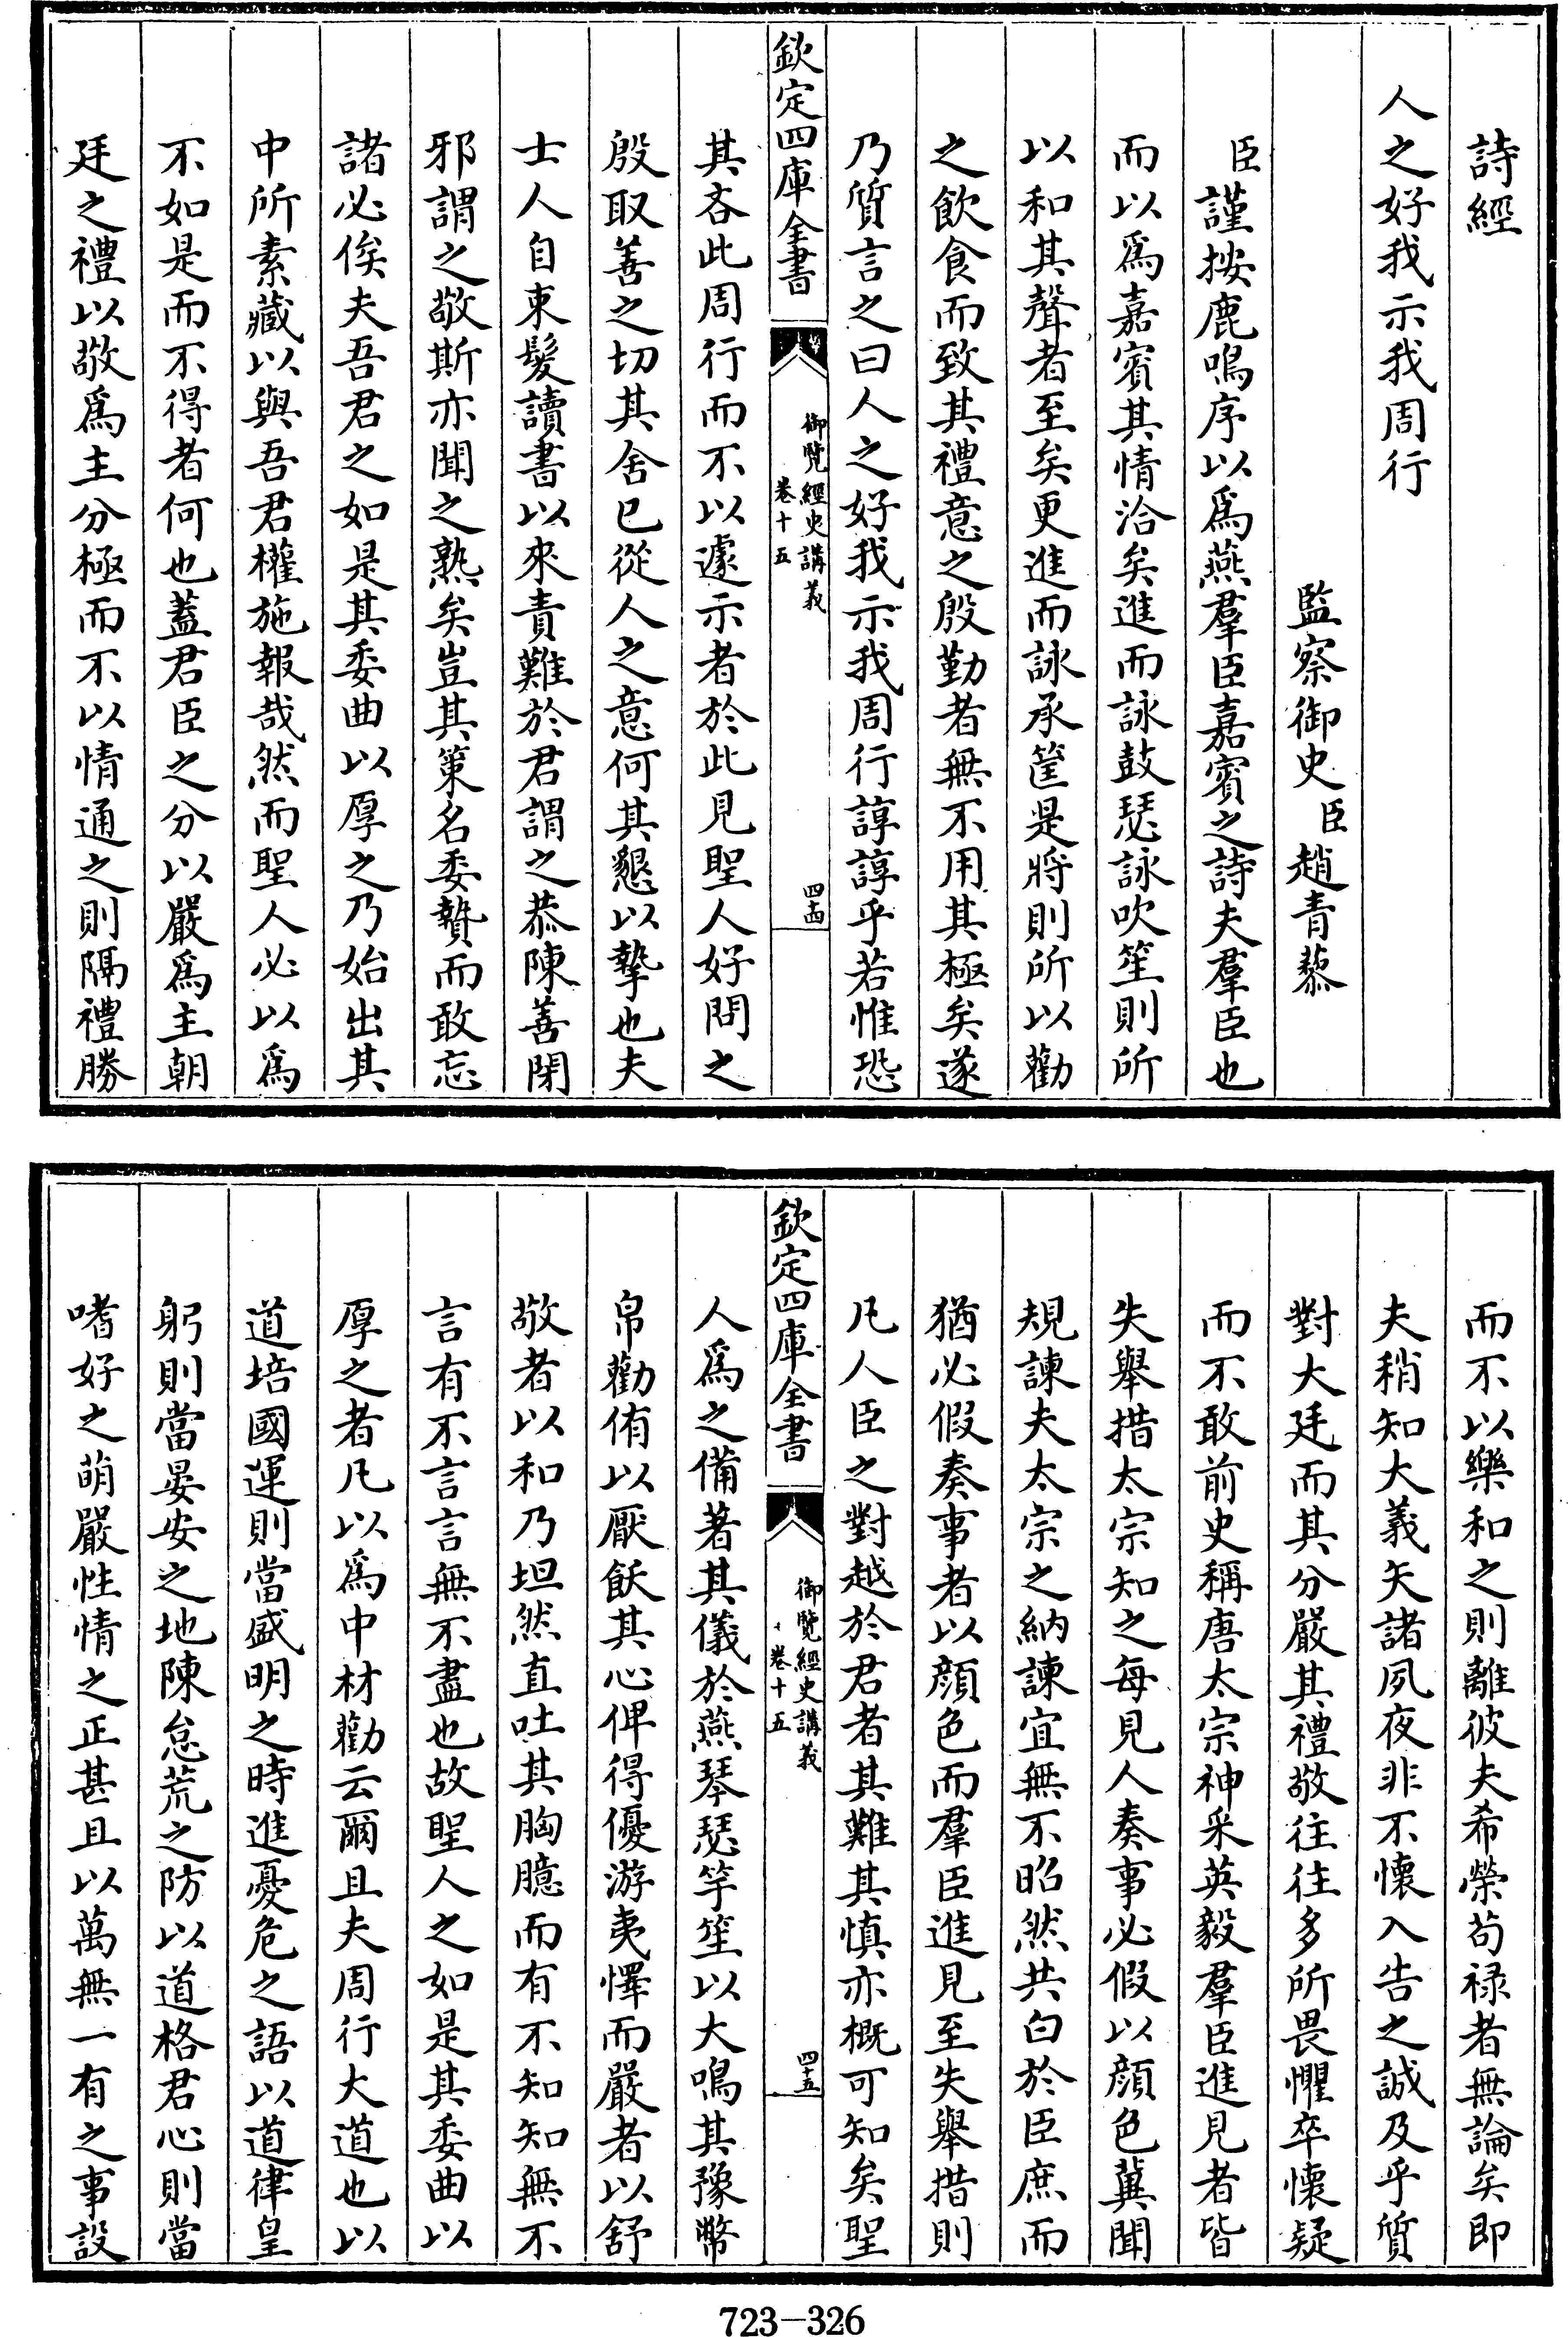 詩經
人之好我示我周行
監察御史臣趙青藜
臣謹按鹿鳴序以爲燕羣臣嘉賓之詩夫羣臣也
而以爲嘉賓其情洽矣進而詠鼓瑟詠吹笙則所
以和其聲者至矣更進而詠承筐是將則所以勸
之飲食而致其禮意之殷勤者無不用其極矣遂
乃質言之曰人之好我示我周行諄諄乎若惟恐
欽定四庫全書
御覽經史講義
卷十五
四十四
其吝此周行而不以遽示者於此見聖人好問之
殷取善之切其舍已從人之意何其懇以摯也夫
士人自束髮讀書以來責難於君謂之恭陳善閉
邪謂之敬斯亦聞之熟矣豈其策名委贄而敢忘
諸必俟夫吾君之如是其委曲以厚之乃始出其
中所素藏以與吾君權施報哉然而聖人必以爲
不如是而不得者何也蓋君臣之分以嚴爲主朝
廷之禮以敬爲主分極而不以情通之則隔禮勝
而不以樂和之則離彼夫希榮苟禄者無論矣即
夫稍知大義矢諸夙夜非不懷入告之誠及乎質
對大廷而其分嚴其禮敬往往多所畏懼卒懷疑
而不敢前史稱唐太宗神采英毅羣臣進見者皆
失舉措太宗知之每見人奏事必假以顔色冀聞
規諫夫太宗之納諫宜無不昭然共白於臣庶而
猶必假奏事者以顔色而羣臣進見至失舉措則
凡人臣之對越於君者其難其慎亦概可知矣聖
欽定四庫全書
御覽經史講義
卷十五
四十五
人爲之備著其儀於燕琴瑟竽笙以大鳴其豫幣
帛勸侑以厭飫其心俾得優游夷懌而嚴者以舒
敬者以和乃坦然直吐其胸臆而有不知知無不
言有不言言無不盡也故聖人之如是其委曲以
厚之者凡以爲中材勸云爾且夫周行大道也以
道培國運則當盛明之時進憂危之語以道律皇
躬則當晏安之地陳怠荒之防以道格君心則當
嗜好之萌嚴性情之正甚且以萬無一有之事設
723-326